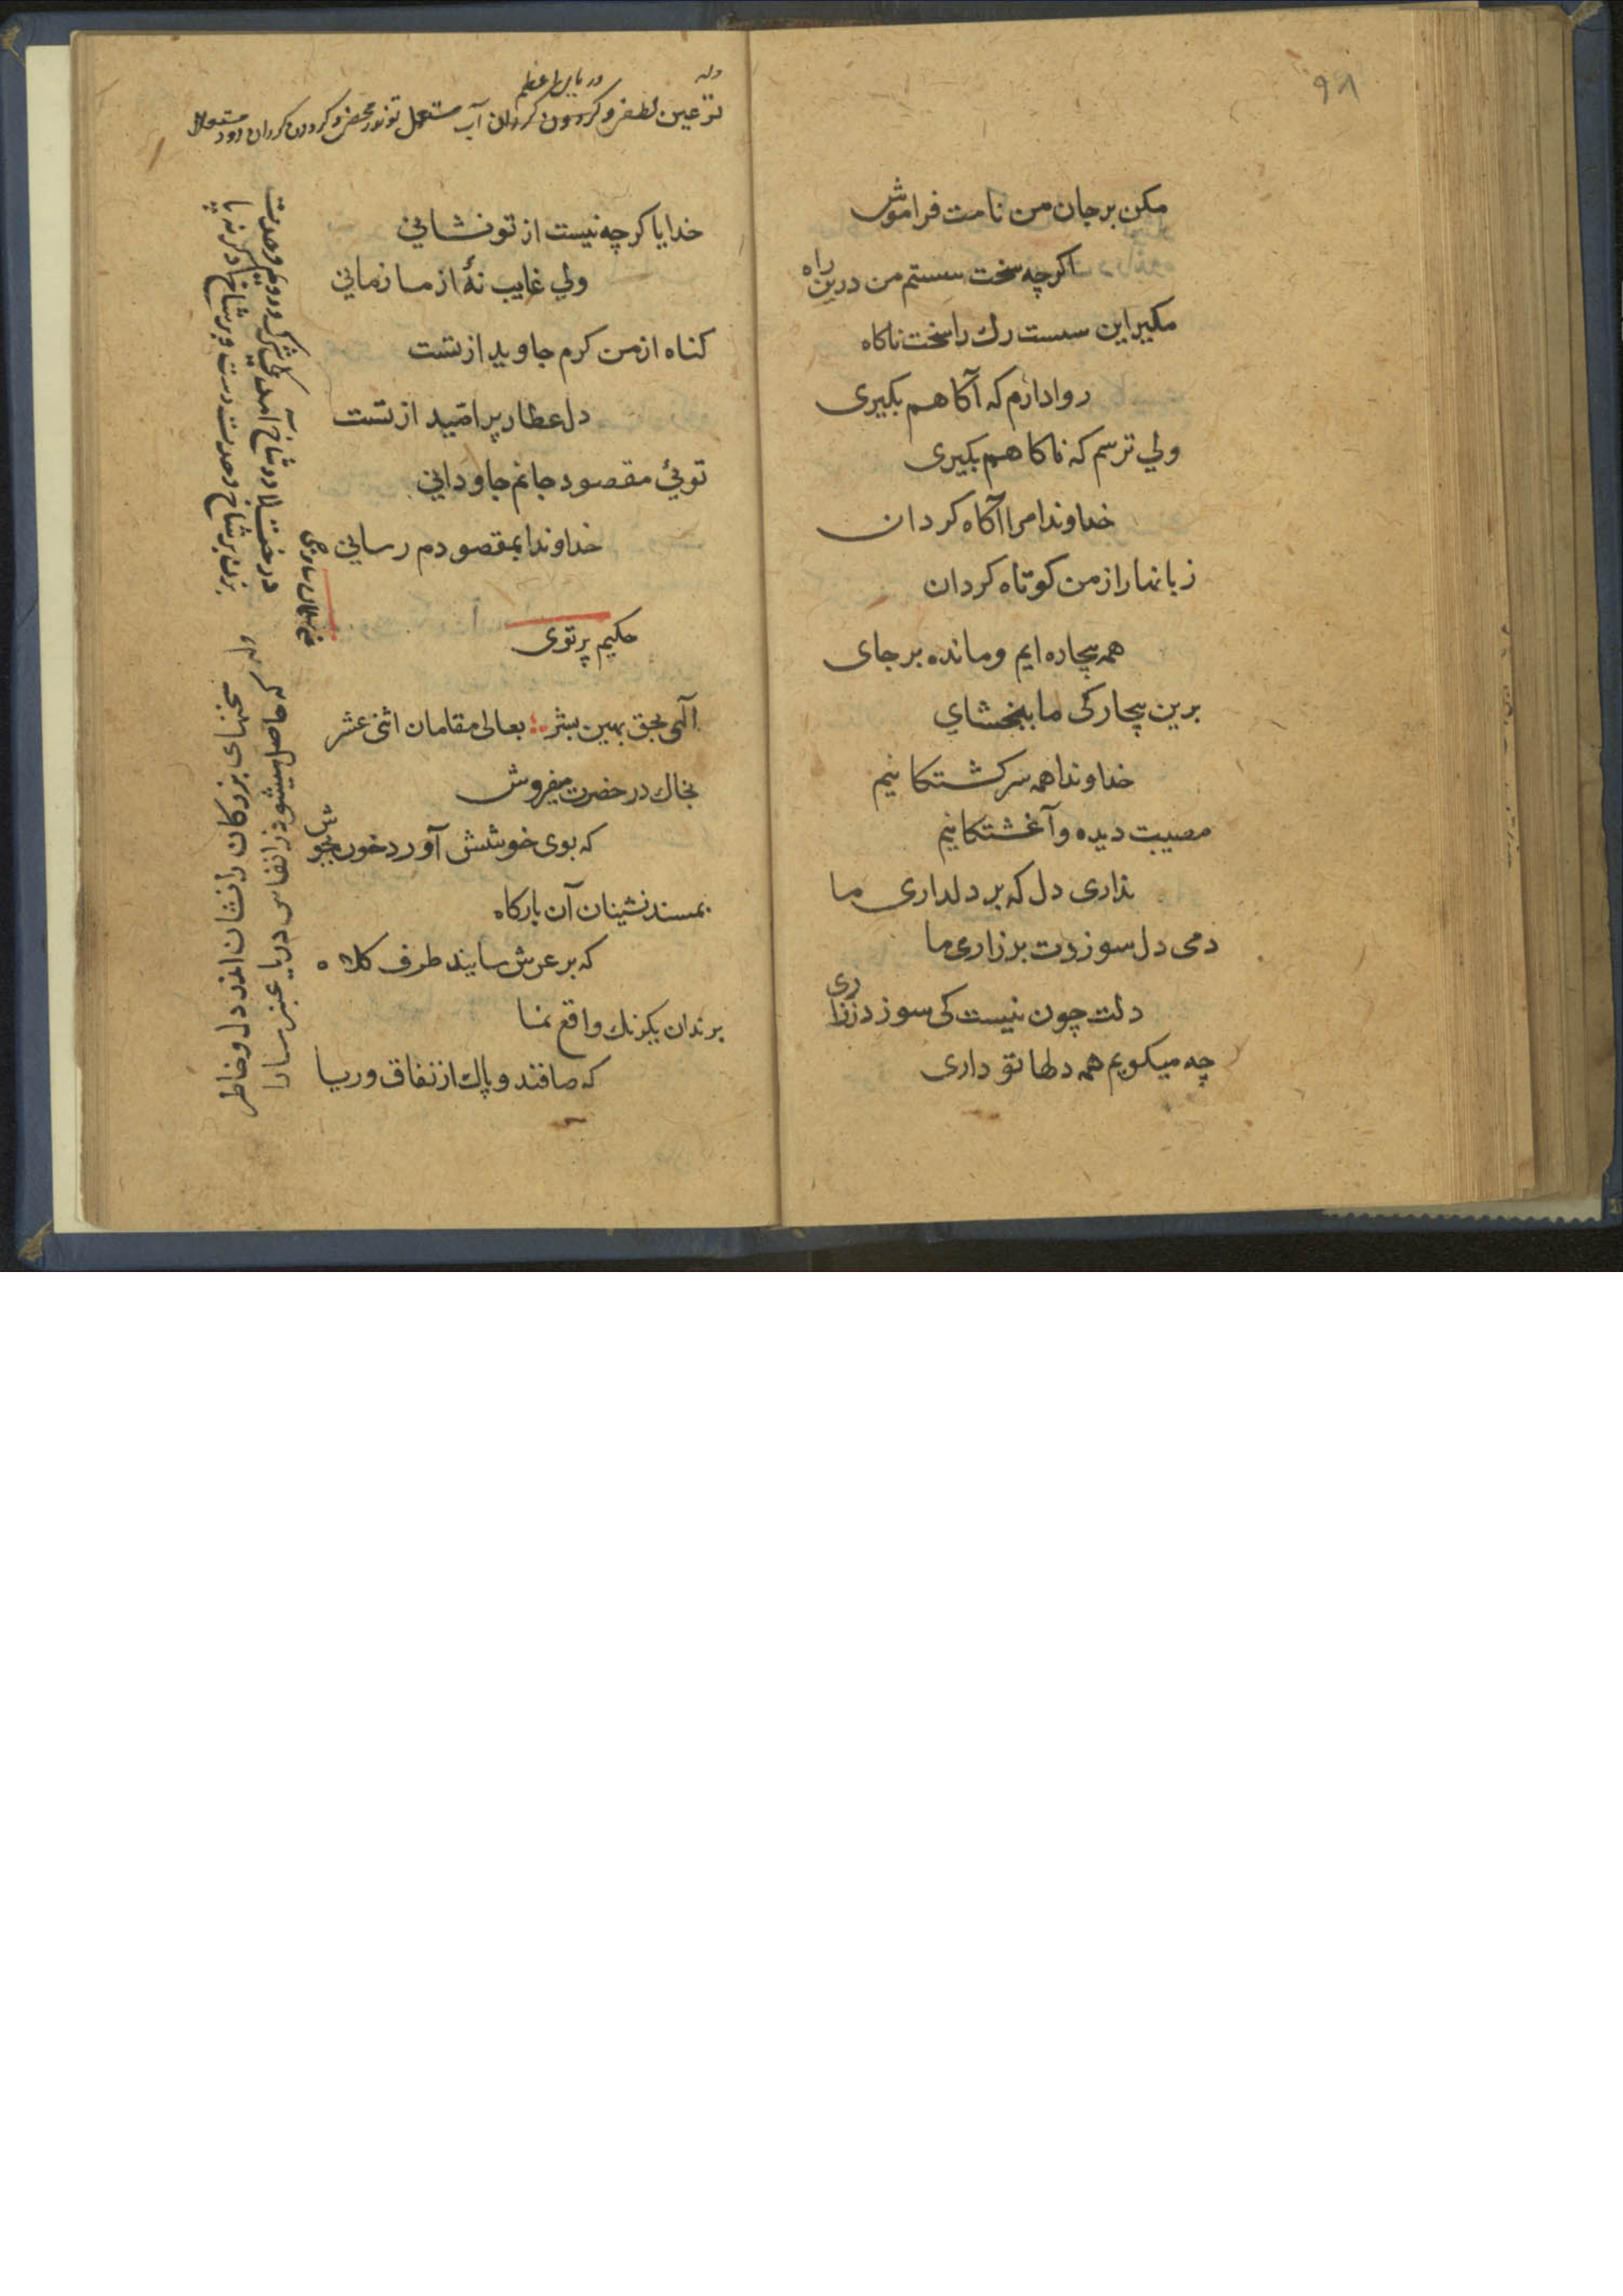 ۹۸
مکن بر جان من نامت فراموش
اکرچه سخت سستم من درین راه
مکیر این سست رك را سخت ناکاه
روا دارم که آکاهم بکیری
ولي ترسم که ناکاهم بکیری
خداوندا مرا آکاه کردان
زبانها را ز من کوتاه کردان
همه بیچاره ایم و مانده بر جای
برین بیچارکی ما ببخشاي
خداوندا همه سرکشتکانیم
مصیبت دیده و آغشتکانیم
نداری دل که بر دلداری ما
دمی دل سوزدت بر زاری ما
دلت چون نیست کی سوزد ز زاری
چه میکویم همه دلها تو داری
وله
تو عین لطفی و کردون کردان آب مستعمل تو نور محض و کردون کردان دود
خدایا کرچه نیست از تو نشاني
ولي غایب نهٔ از ما زماني
کناه از من کرم جاوید از تست
دل عطار پر امّید از تست
توئي مقصود جانم جاوداني
خداوندا بمقصودم رساني
حکیم پرتوی
آلهی بحق بهین بشر بعالی مقامان اثنی عشر
بخاك در حضرت میفروش
که بوی خوشش آورد خون بجوش
بمسند نشینان آن بارکاه
که بر عرش سایند طرف کلاه
برندان یکرنك واقع نما
که صافند و پاك از نفاق و ریا
درخت لا دو شاخ آمد یکی شرك و دوم وحدت
بزن بر شاخ وحدت دست و بر شاخ دکر نه پا
وله
سخنهای بزرکان را نشان اندر دل و خاطر
که حاصل میشود ز انفاس دریا عنبر سارا